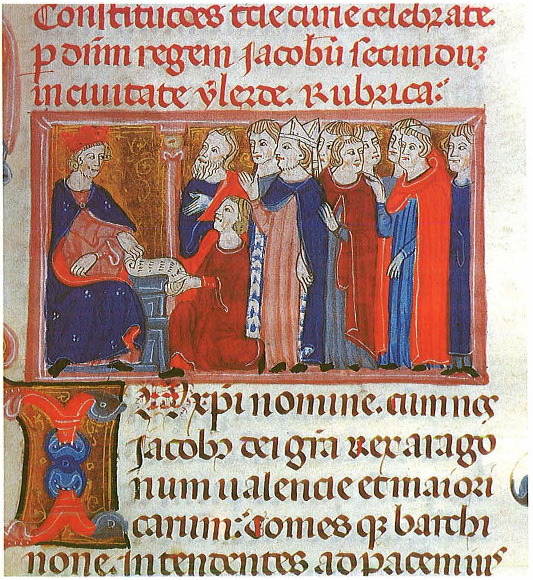 Constitucões t̄cie curie celebrate.
p dn̄m regem Jacobū secunduz
in ciuitate ylerde. Rubrica:
In xp̄i nomine. cum nos
Jacobꝫ dei gr̄a rex arago
num ualencie et maiori
carum: Comes qꝫ barchi
none. Intendentes ad pacem